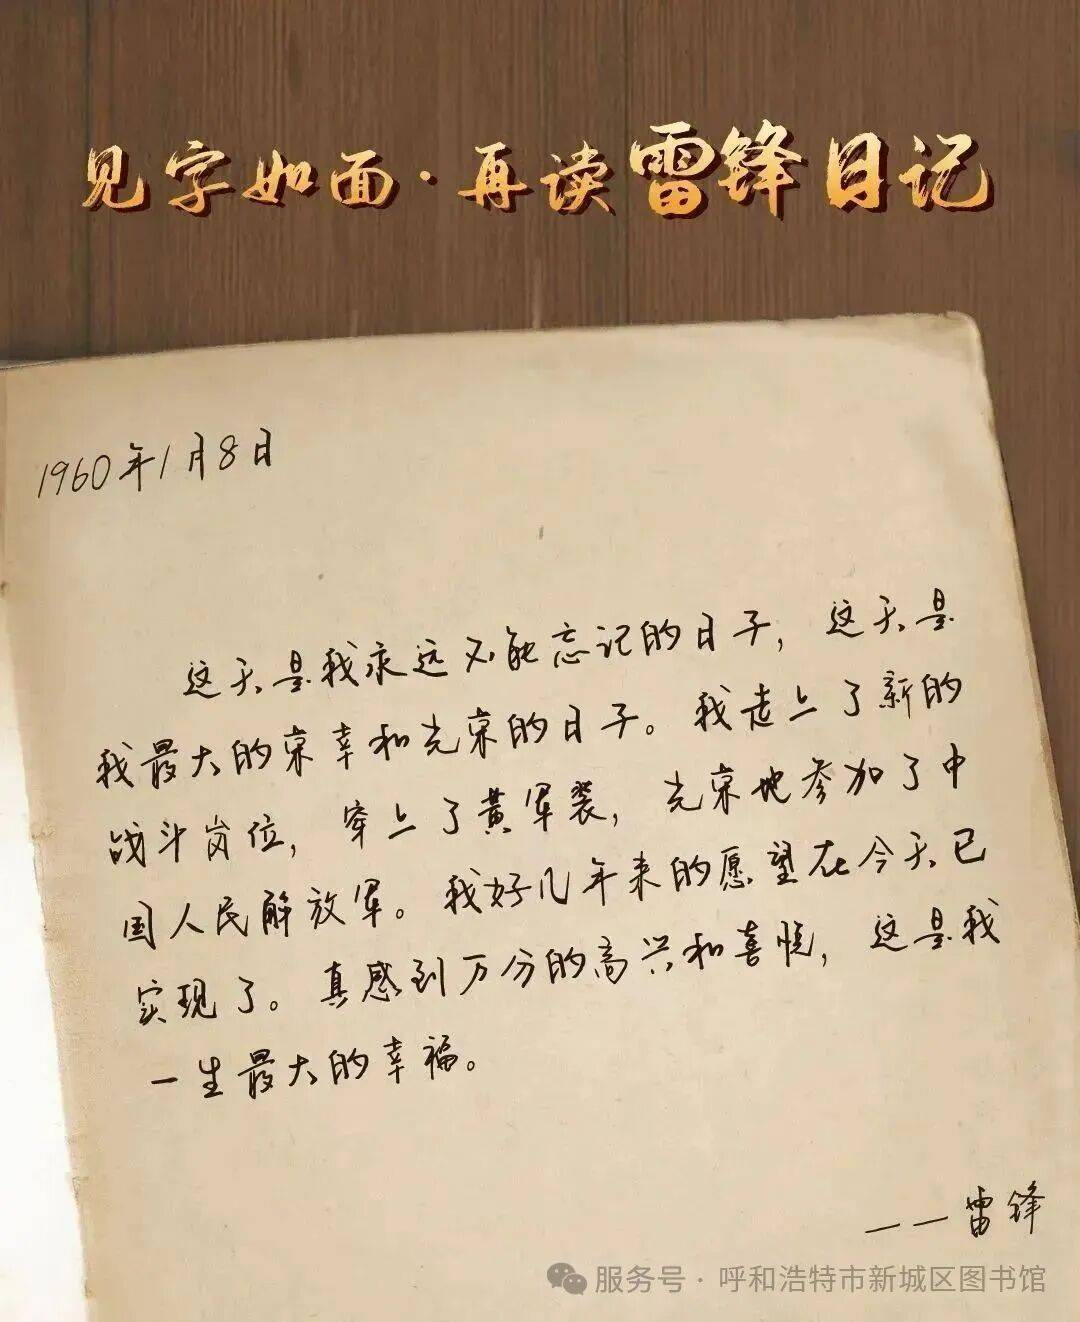 见字如面·再读雷锋日记
1960年1月8日
这天是我永远不能忘记的日子，这天是
我最大的荣幸和光荣的日子。我走上了新的
战斗岗位，穿上了黄军装，光荣地参加了中
国人民解放军。我好几年来的愿望在今天已
实现了。真感到万分的高兴和喜悦，这是我
一生最大的幸福。
——雷锋
服务号·呼和浩特市新城区图书馆